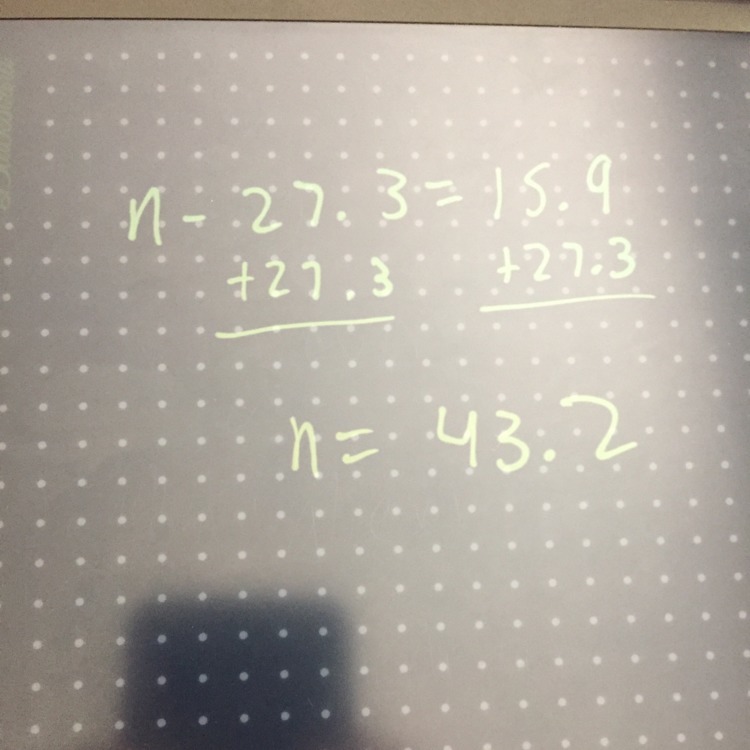 n - 27.3 = 15.9
+27.3 +27.3
n = 43.2